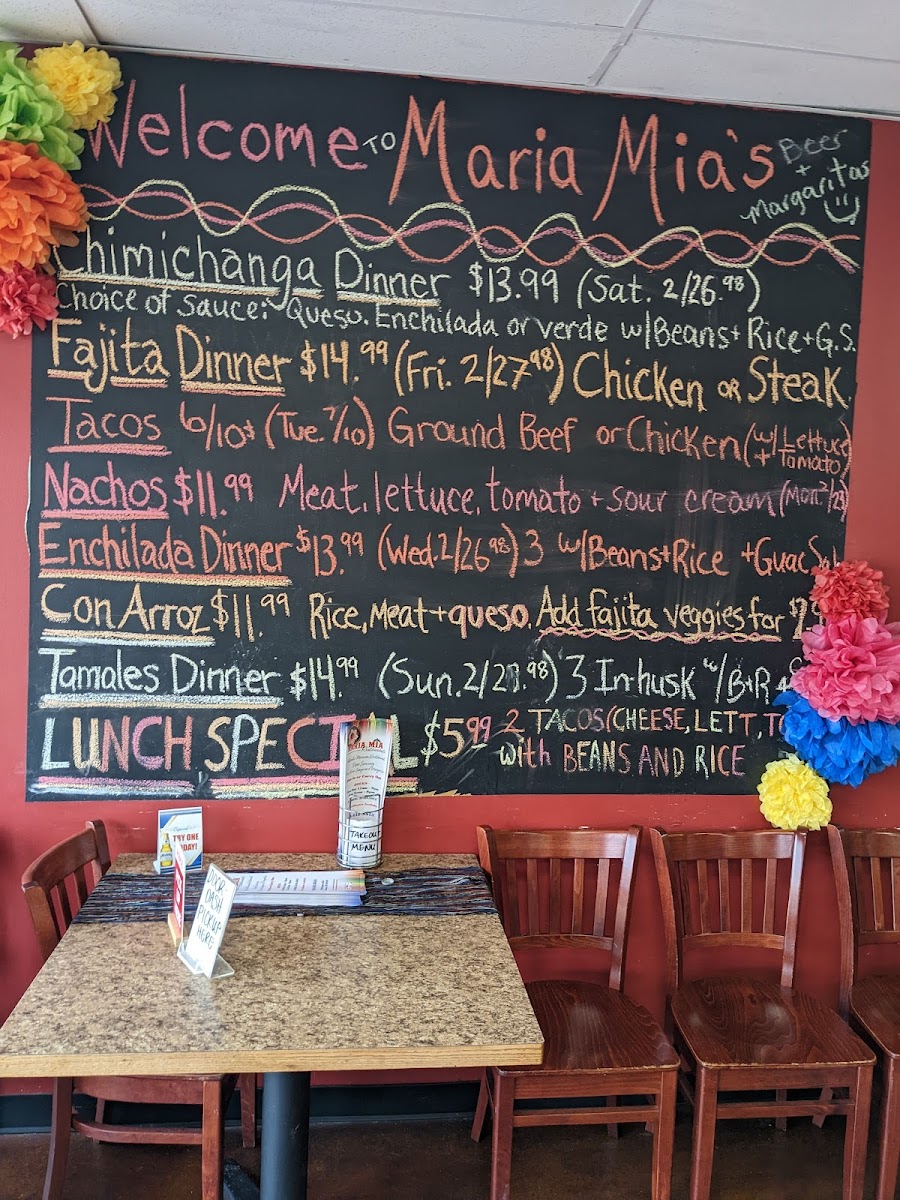 Welcome TO Maria Mia's
Beer
+
Margaritas
Chimichanga Dinner $13.99 (Sat. 2/26.98)
Choice of Sauce: Queso. Enchilada or verde w/Beans+Rice+G.S.
Fajita Dinner $14.99 (Fri. 2/27.98) Chicken OR Steak
Tacos 6/10$ (Tue. 7/10) Ground Beef or Chicken (w/Lettuce + Tomato)
Nachos $11.99 Meat, lettuce, tomato + sour cream (Mon
Enchilada Dinner $13.99 (Wed. 2/26.98) 3 w/Beans+Rice +Guac
Con Arroz $11.99 Rice, Meat + queso. Add fajita veggies for
Tamales Dinner $14.99 (Sun. 2/27.98) 3 In-husk w/B+R
LUNCH SPECI L $5.99 2 TACOS (CHEESE, LETT,
with BEANS AND RICE
MARIA MIA
TAKEOUT
MENU
TRY ONE
DOOR
DASH
PICKUP
HERE